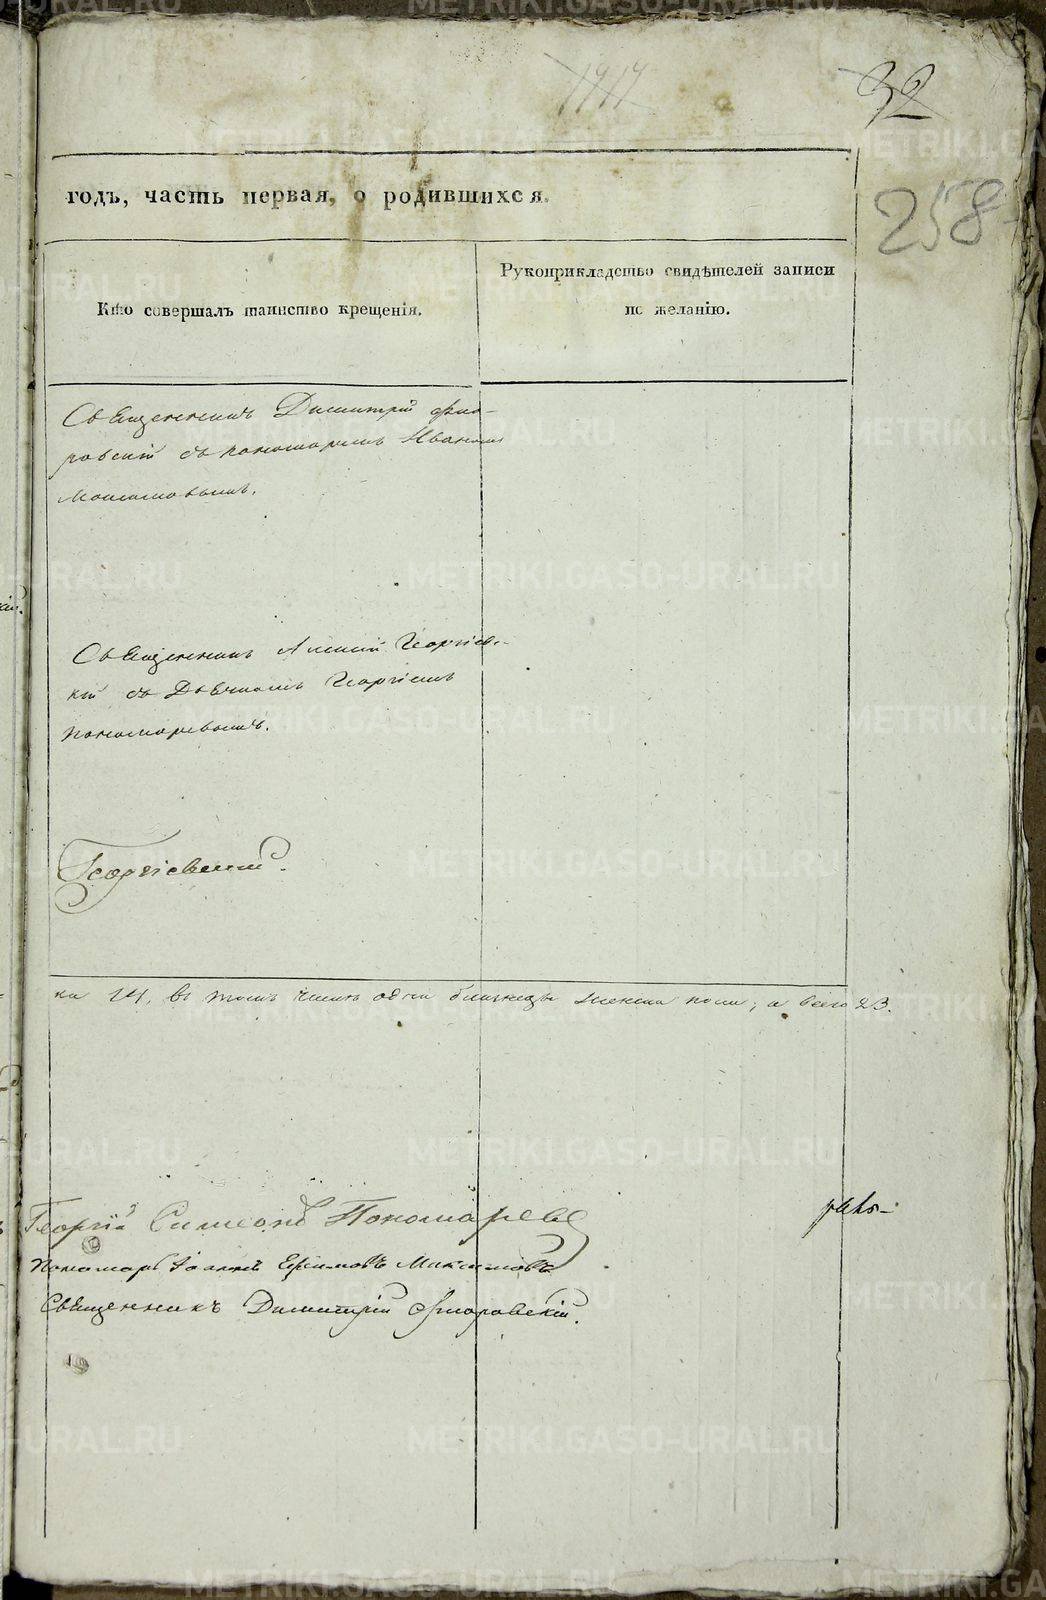 1914
32
258
годъ, часть первая, о родившихся.
Кто совершалъ таинство крещенія.
Рукоприкладство свидѣтелей записи
по желанію.
Священникъ Димитрій Фло-
ровскій съ пономаремъ Иваномъ
Максимовымъ.
Священникъ Алексій Георгіевс-
кій съ Дьячкомъ Георгіемъ
Пономаревымъ.
Георгіевскій.
ка 14, въ томъ числѣ одни близнецы женска пола; а всего 23.
Георгій Симеоновъ Пономаревъ
руко-
Пономарь Іоаннъ Ефимовъ Максимовъ
Священникъ Димитрій Флоровскій.
METRIKI.GASO-URAL.RU